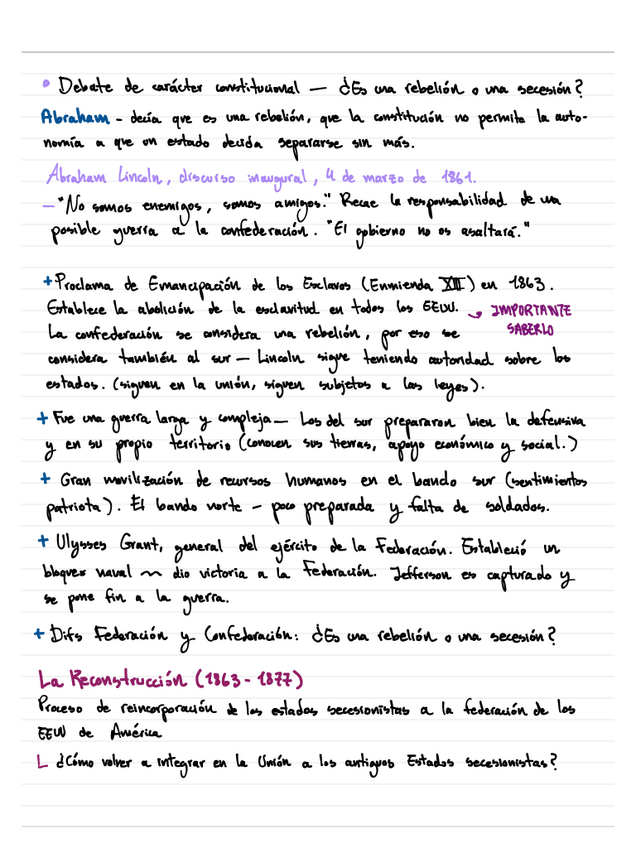 • Debate de carácter constitucional — ¿Es una rebelión o una secesión?
Abraham - decía que es una rebelión, que la constitución no permite la auto-
nomía a que un estado decida separarse sin más.
Abraham Lincoln, discurso inaugural, 4 de marzo de 1861.
— "No somos enemigos, somos amigos." Recae la responsabilidad de una
posible guerra a la confederación. "El gobierno no os asaltará."
+ Proclama de Emancipación de los Esclavos (Enmienda XIII) en 1863.
Establece la abolición de la esclavitud en todos los EEUU. → IMPORTANTE
SABERLO
La confederación se considera una rebelión, por eso se
considera también al sur — Lincoln sigue teniendo autoridad sobre los
estados. (siguen en la unión, siguen subjetos a las leyes).
+ Fue una guerra larga y compleja — Los del sur prepararon bien la defensiva
y en su propio territorio (conocen sus tierras, apoyo económico y social.)
+ Gran movilización de recursos humanos en el bando sur (sentimientos
patriota). El bando norte - poco preparada y falta de soldados.
+ Ulysses Grant, general del ejército de la Federación. Estableció un
bloqueo naval ~ dio victoria a la Federación. Jefferson es capturado y
se pone fin a la guerra.
+ Difs Federación y Confederación: ¿Es una rebelión o una secesión?
La Reconstrucción (1863 - 1877)
Proceso de reincorporación de los estados secesionistas a la federación de los
EEUU de América
L ¿Cómo volver a integrar en la Unión a los antiguos Estados secesionistas?